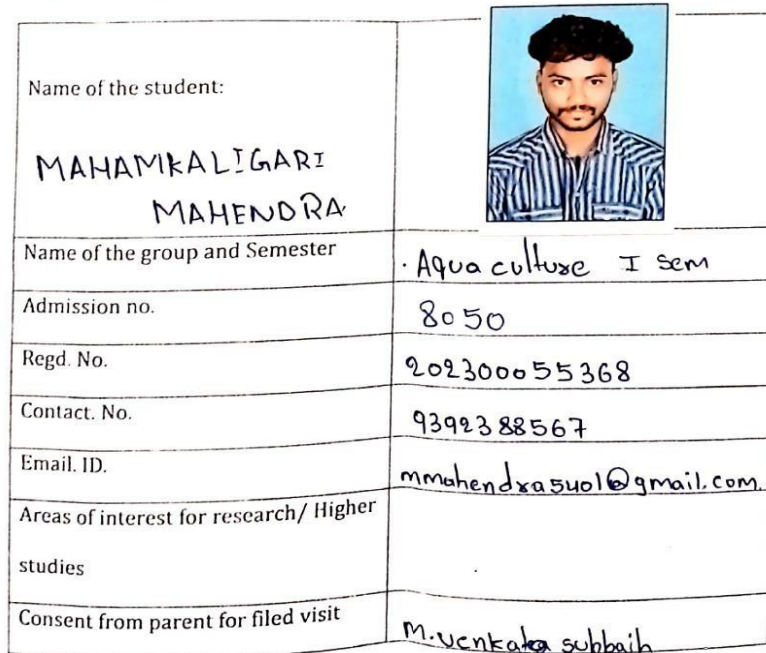 Name of the student:
MAHAMKALIGARI
MAHENDRA
Name of the group and Semester
. Aqua culture I sem
Admission no.
8050
Regd. No.
202300055368
Contact. No.
9392388567
Email. ID.
mmahendra5401@gmail.com.
Areas of interest for research/ Higher
studies
Consent from parent for filed visit
M. venkata subbaih